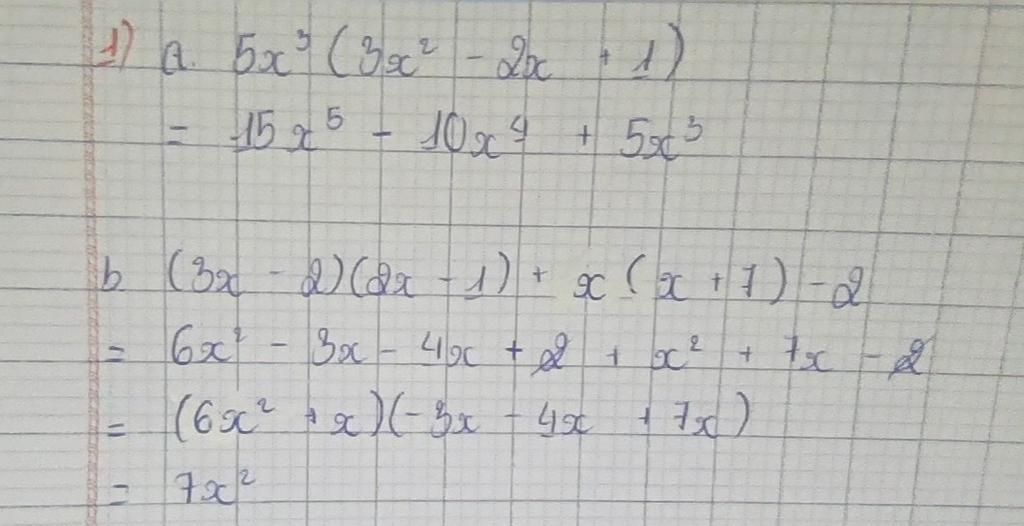 1) a. 5x³ (3x² - 2x + 1)
= 15x⁵ - 10x⁴ + 5x³
b (3x - 2)(2x - 1) + x (x + 7) - 2
= 6x² - 3x - 4x + 2 + x² + 7x - 2
= (6x² + x)(-3x - 4x + 7x)
= 7x²